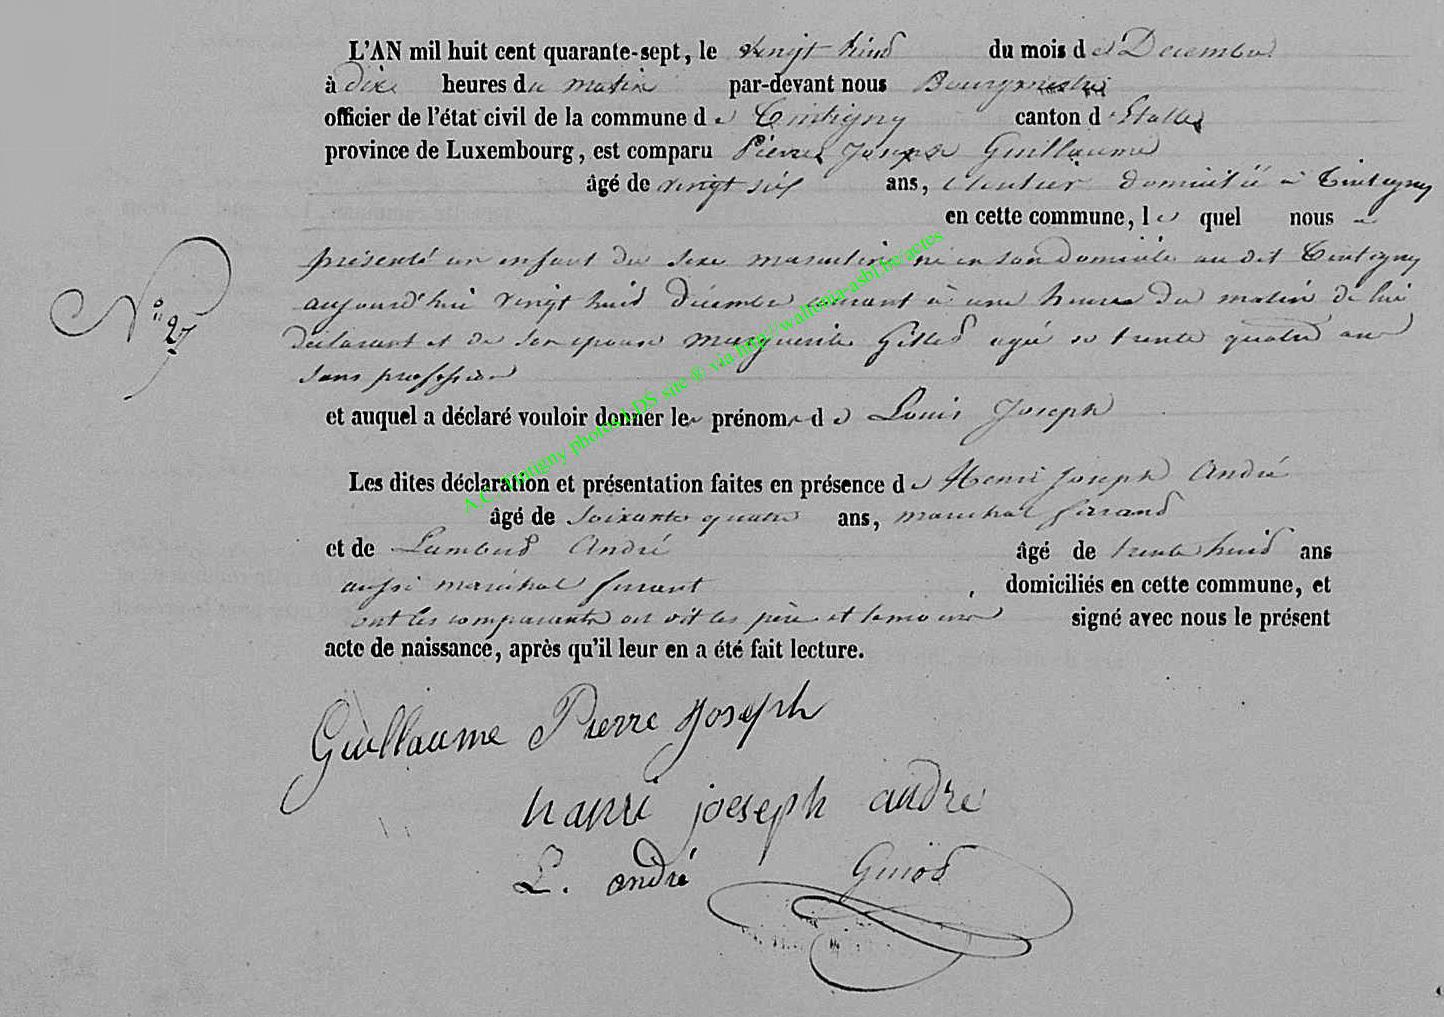 L'AN mil huit cent quarante-sept, le vingt huit du mois de Décembre
à dix heures du matin par-devant nous Bourgmestre
officier de l'état civil de la commune de Tintigny canton d'Etalle
province de Luxembourg, est comparu Pierre Joseph Guillaume
âgé de vingt six ans, domicilié à Tintigny
en cette commune, le quel nous a
présenté un enfant du sexe masculin né en son domicile au dit Tintigny
aujourd'hui vingt huit décembre courant à une heure du matin de lui
déclarant et de son épouse Marguerite Gillet agée de trente quatre ans
sans profession
N° 27
et auquel a déclaré vouloir donner les prénoms de Louis Joseph
Les dites déclaration et présentation faites en présence de Henri Joseph André
âgé de soixante quatre ans, maréchal ferrand
et de Lambert André âgé de trente huit ans
aussi maréchal ferrant domiciliés en cette commune, et
ont les comparants on dit les père et temoins signé avec nous le présent
acte de naissance, après qu'il leur en a été fait lecture.
Guillaume Pierre Joseph
hanri joeseph andre
L. andré Guiot
A.C. Tintigny photos LDS site ® via http://wallonia-asbl.be/actes